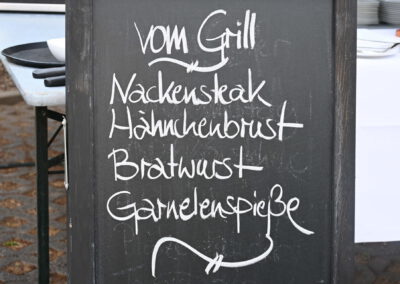 vom Grill
Nackensteak
Hähnchenbrust
Bratwurst
Garnelenspieße